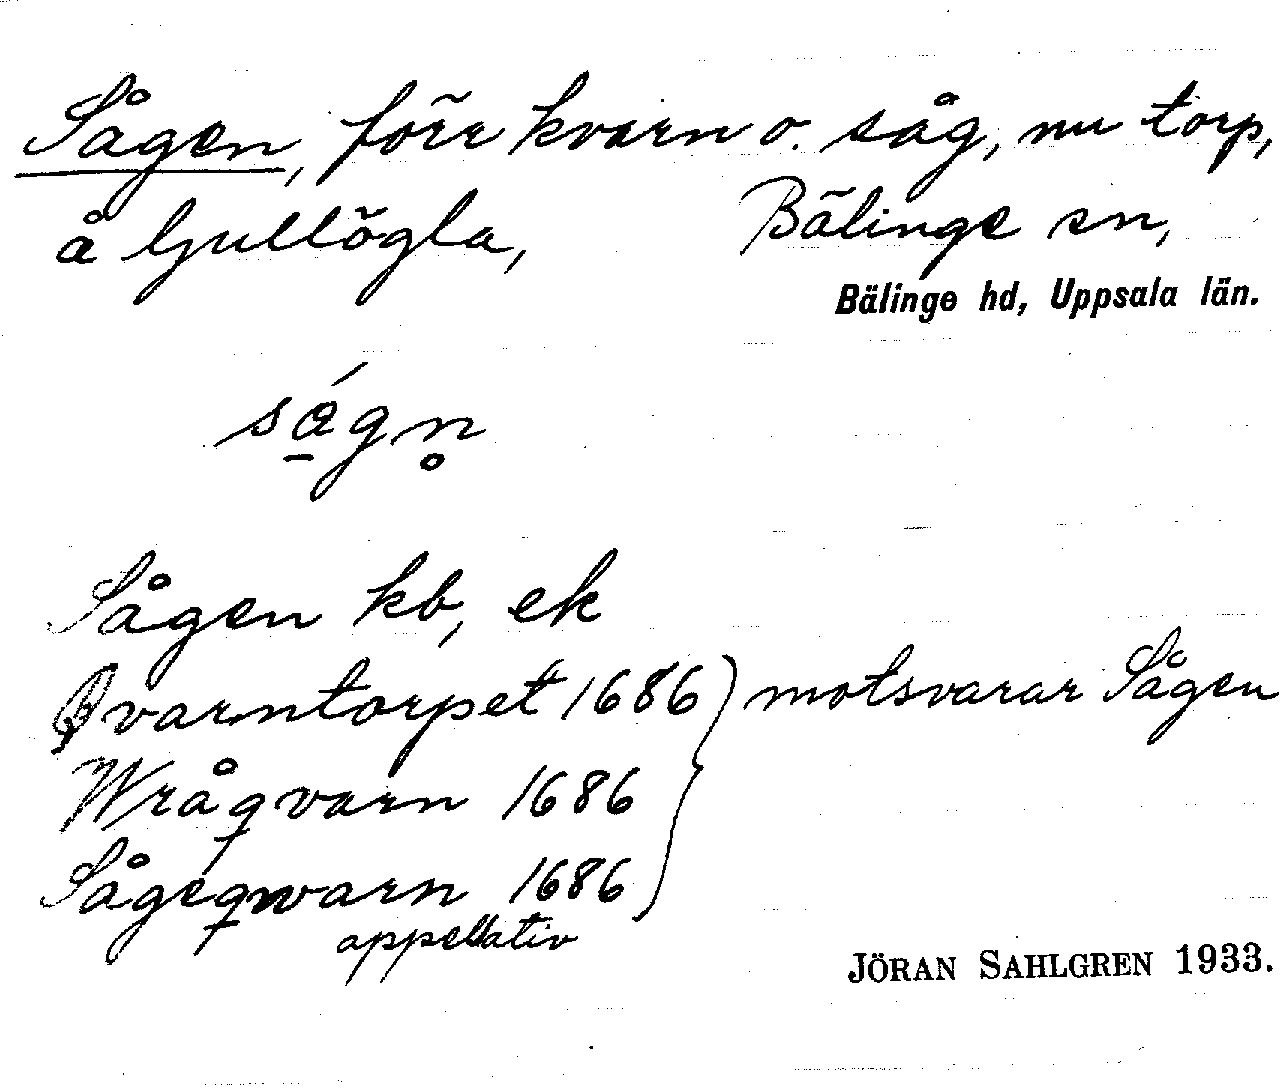 Sågen, förr kvarn o. såg, nu torp,
å Ljullögla, Bälinge sn,
Bälinge hd, Uppsala län.
ságn̥
Sågen kb, ek
Qvarntorpet 1686 } motsvarar Sågen
Wråqvarn 1686
Sågeqwarn 1686
appellativ
JÖRAN SAHLGREN 1933.